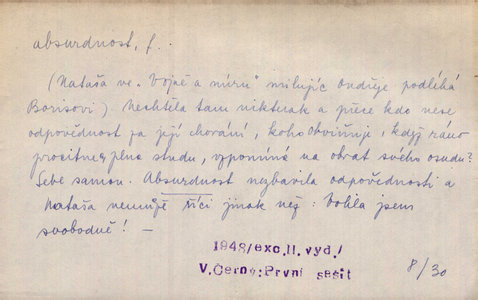 absurdnost, f.
(Nataša ve „Vojně a míru" milujíc Ondřeje podléhá
Borisovi). Nechtěla tam niktnak a přece kdo nese
odpovědnost za její chování, koho obviňuje, když ráno
procitne plna studu, vzpomíná na obrat svého osudu?
Sebe samou. Absurdnost nezbavila odpovědnosti a
Nataša nemůže říci jinak než: Volila jsem
svobodně! —
1948/exc.II.vyd./
V.Černý:První sešit
8/30